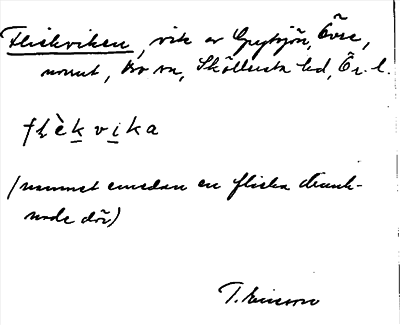 Flickviken, vik av Grytsjön, Övre,
norrut, Bo sn, Sköllersta hd, Ör. l.
flèkvika
(namnet emedan en flicka drunk-
nade där)
T. Ericsson